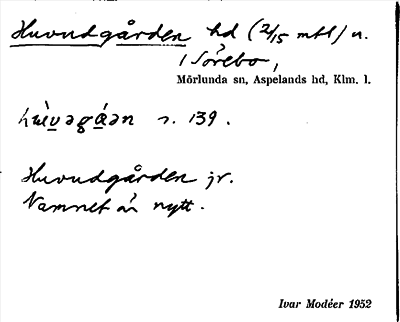 Huvudgården hd (2/15 mtl) u.
i Sörebo,
Mörlunda sn, Aspelands hd, Klm. l.
s. 139.
Huvudgården jr.
Namnet är nytt.
Ivar Modéer 1952